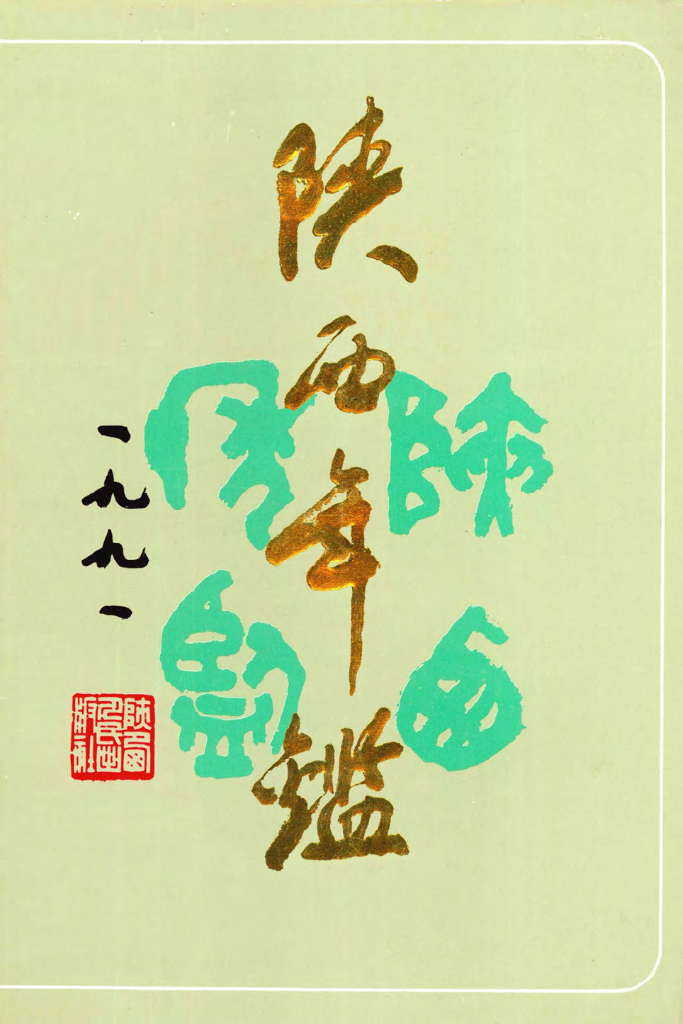 陕西年鑑
陕西年鑑
一九九一
陕西人民出版社